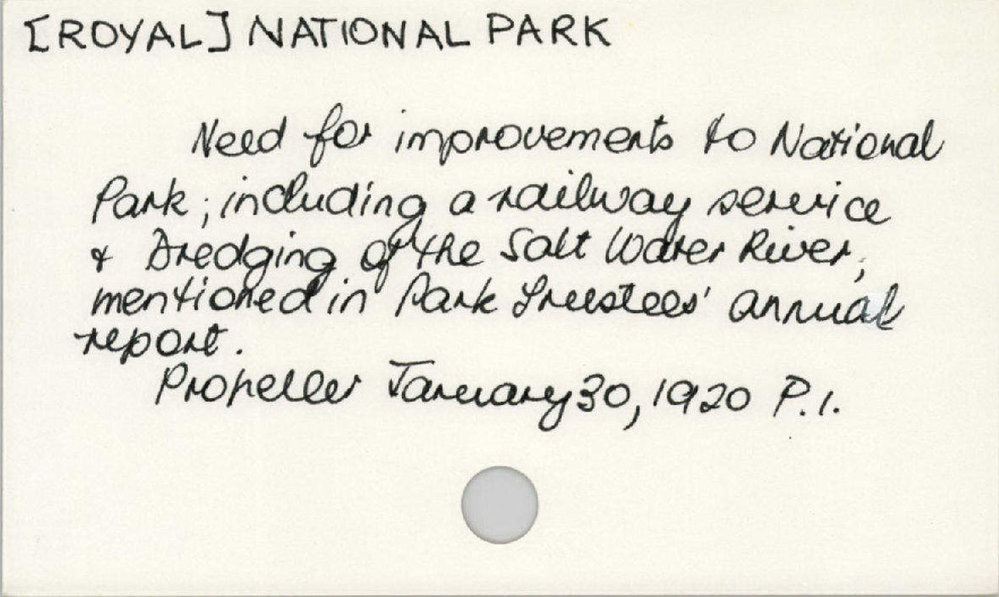 [ROYAL] NATIONAL PARK
Need for improvements to National
Park; including a railway service
& Dredging of the Salt Water River,
mentioned in Park Trustees' annual
report.
Propeller January 30, 1920 P.1.